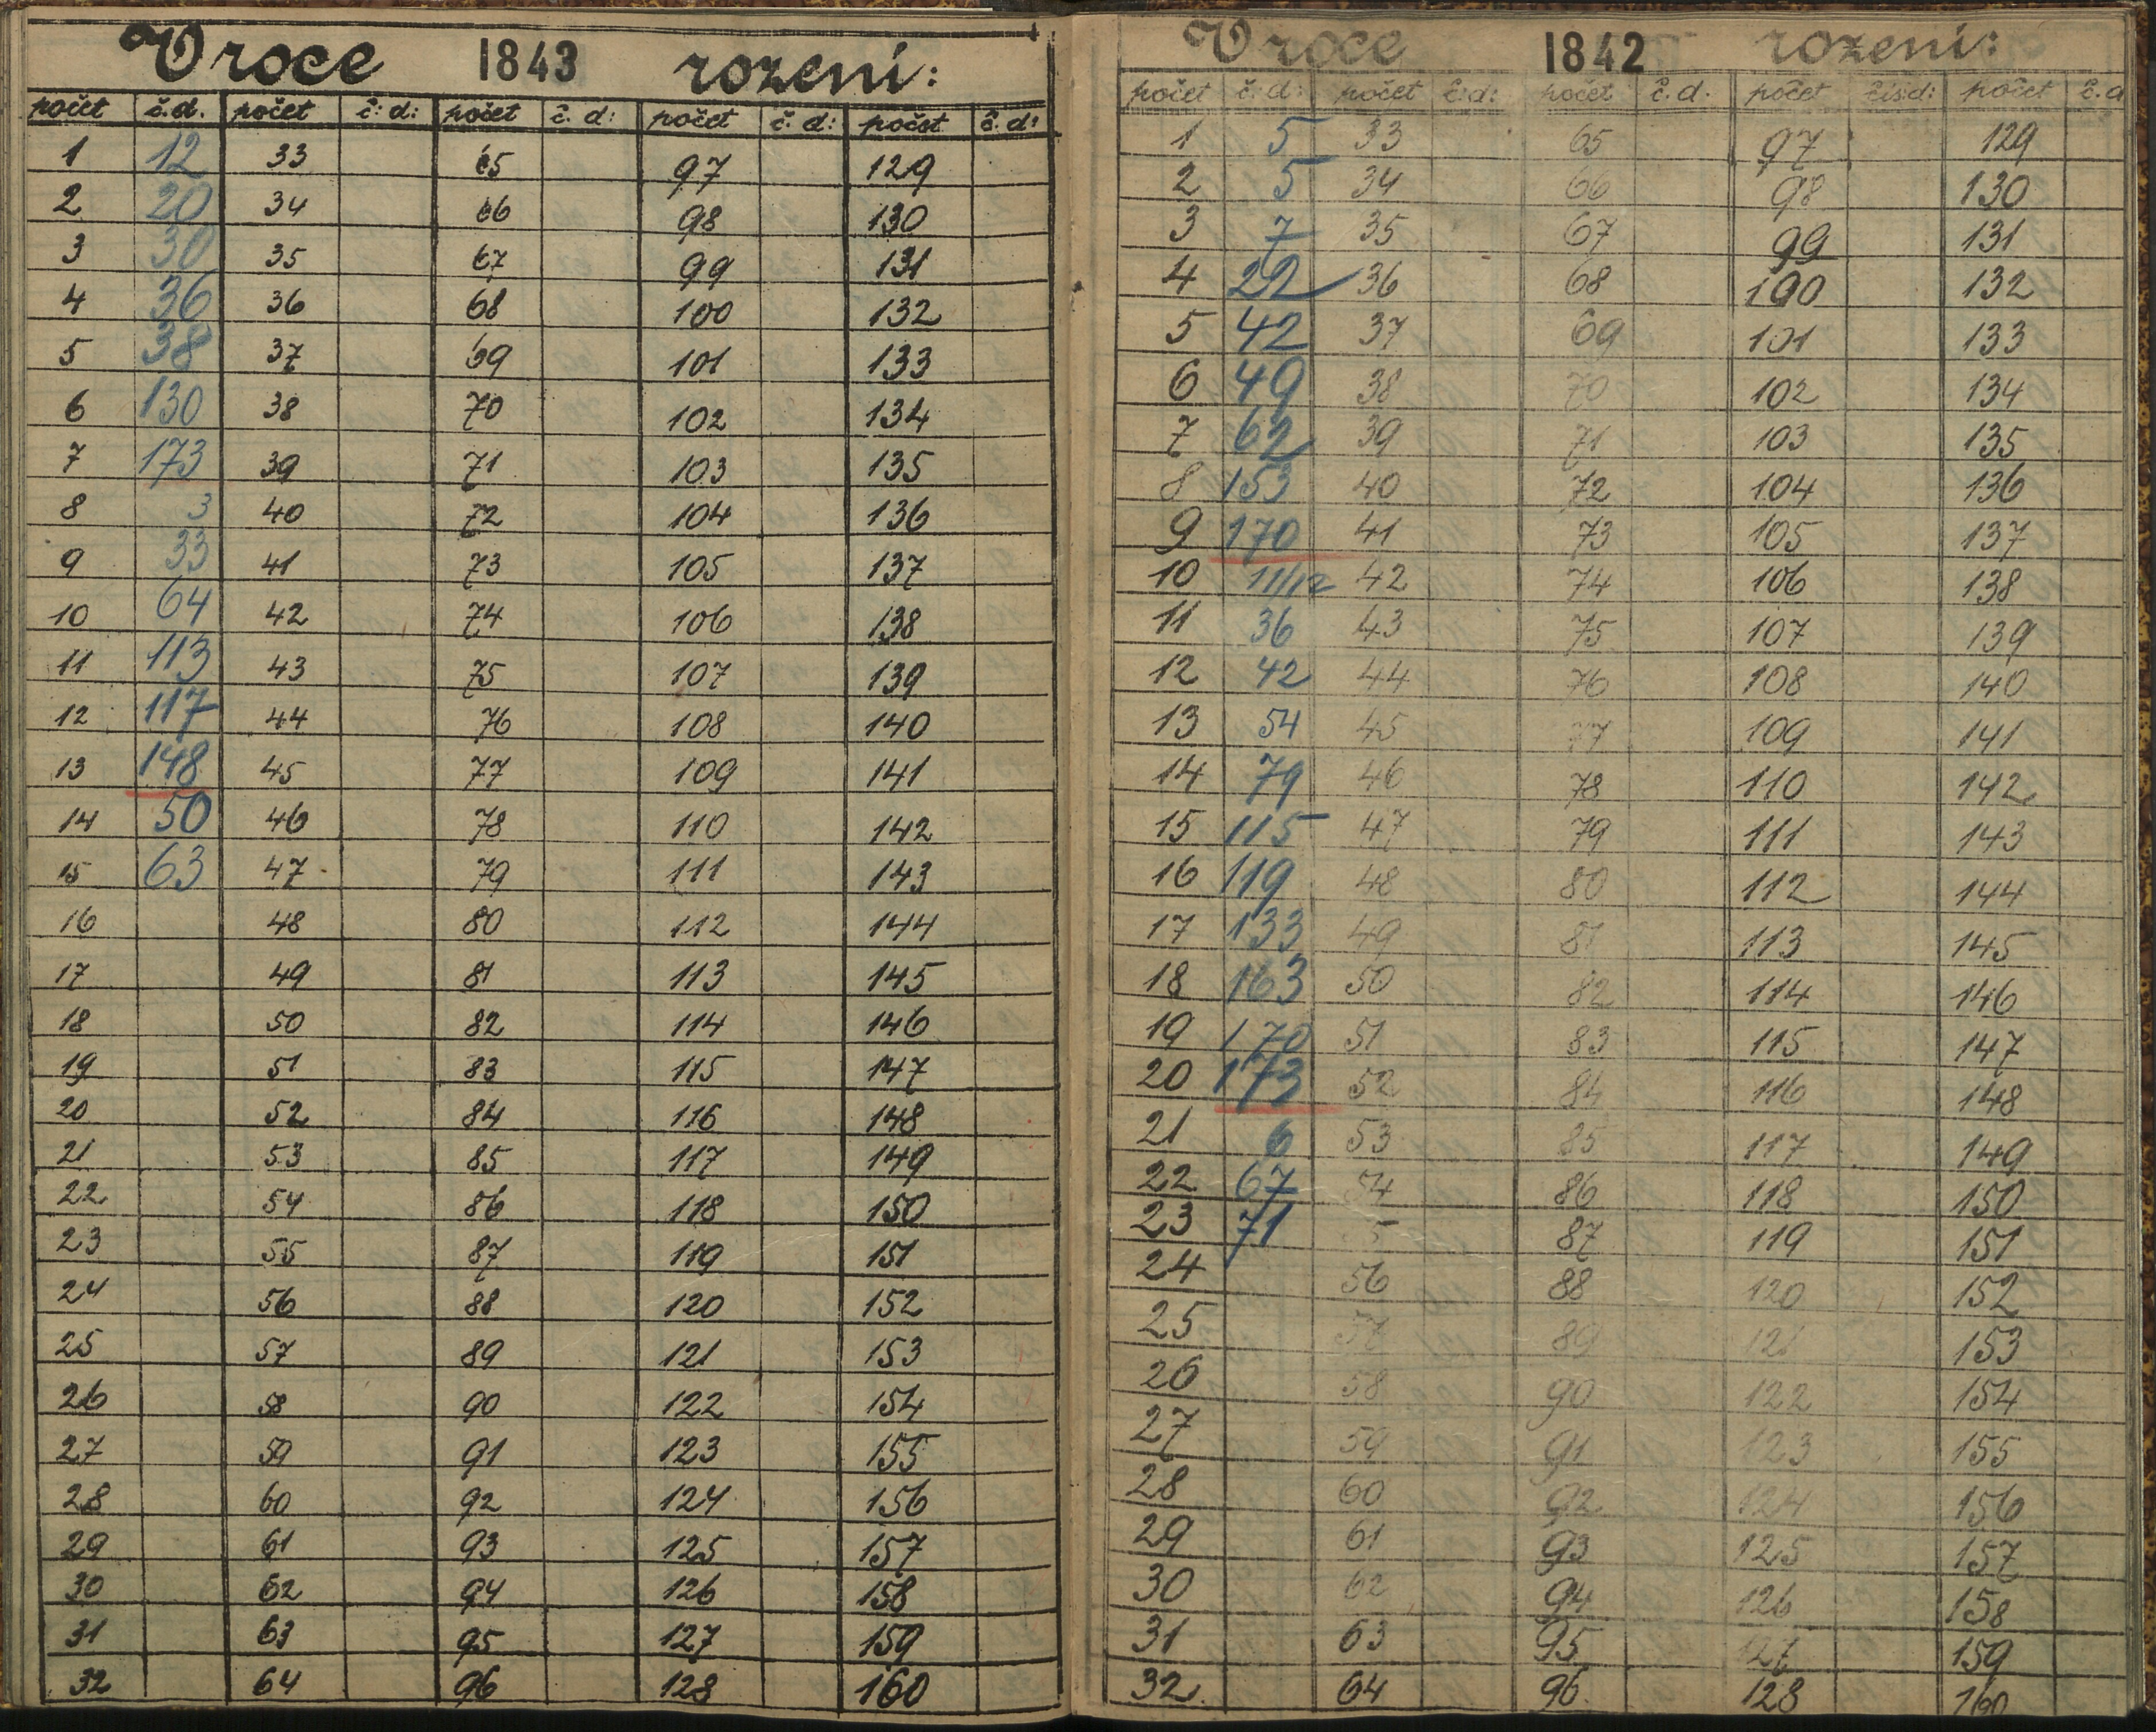 V roce 1843 rození:
počet č.d. počet č: d: počet č. d: počet č. d: počet č. d:
1 12 33 65 97 129
2 20 34 66 98 130
3 30 35 67 99 131
4 36 36 68 100 132
5 38 37 69 101 133
6 130 38 70 102 134
7 173 39 71 103 135
8 3 40 72 104 136
9 33 41 73 105 137
10 64 42 74 106 138
11 113 43 75 107 139
12 117 44 76 108 140
13 148 45 77 109 141
14 50 46 78 110 142
15 63 47 79 111 143
16 48 80 112 144
17 49 81 113 145
18 50 82 114 146
19 51 83 115 147
20 52 84 116 148
21 53 85 117 149
22 54 86 118 150
23 55 87 119 151
24 56 88 120 152
25 57 89 121 153
26 58 90 122 154
27 59 91 123 155
28 60 92 124 156
29 61 93 125 157
30 62 94 126 158
31 63 95 127 159
32 64 96 128 160
V roce 1842 rození:
počet č: d: počet č:d: počet č. d. počet čís:d: počet č. d
1 5 33 65 97 129
2 5 34 66 98 130
3 7 35 67 99 131
4 22 36 68 100 132
5 42 37 69 101 133
6 49 38 70 102 134
7 62 39 71 103 135
8 153 40 72 104 136
9 170 41 73 105 137
10 11/12 42 74 106 138
11 36 43 75 107 139
12 42 44 76 108 140
13 54 45 77 109 141
14 79 46 78 110 142
15 115 47 79 111 143
16 119 48 80 112 144
17 133 49 81 113 145
18 163 50 82 114 146
19 170 51 83 115 147
20 173 52 84 116 148
21 6 53 85 117 149
22 67 54 86 118 150
23 71 5 87 119 151
24 56 88 120 152
25 57 89 121 153
26 58 90 122 154
27 59 91 123 155
28 60 92 124 156
29 61 93 125 157
30 62 94 126 158
31 63 95 127 159
32. 64 96. 128 160